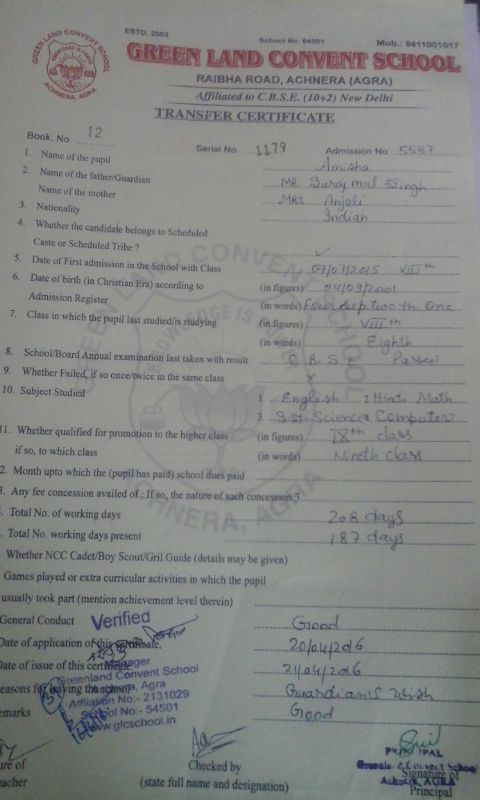 ESTD. 2003 School No. 54501 Mob.: 9411001017
GREEN LAND CONVENT SCHOOL
RAIBHA ROAD, ACHNERA (AGRA)
Affiliated to C.B.S.E. (10+2) New Delhi
TRANSFER CERTIFICATE
Book. No 12 Serial No 1179 Admission No 5587
1. Name of the pupil Amisha
2. Name of the father/Guardian MR Suraj mal Singh
Name of the mother MRs Anjali
3. Nationality Indian
4. Whether the candidate belongs to Scheduled
Caste or Scheduled Tribe ?
5. Date of First admission in the School with Class 07/07/2015 VIIIth
6. Date of birth (in Christian Era) according to (in figures) 24/09/2001
Admission Register (in words)
7. Class in which the pupil last studied/is studying (in figures) VIIIth
(in words) Eighth
8. School/Board Annual examination last taken with result C B S E Passed
9. Whether Failed, if so once/twice in the same class X
10. Subject Studied 1. English 2 Hindi Math
3. S.st Science Computer
11. Whether qualified for promotion to the higher class (in figures) IXth class
if so, to which class (in words) Nineth class
2. Month upto which the (pupil has paid) school does paid
3. Any fee concession availed of : If so, the nature of such concession 3
. Total No. of working days 208 days
. Total No. of working days present 187 days
Whether NCC Cadet/Boy Scout/Gril Guide (details may be given)
Games played or extra curricular activities in which the pupil
usually took part (mention achievement level therein)
General Conduct Good
Verified
Date of application of this certificate. 20/04/2016
Manager
Date of issue of this certificate 21/04/2016
Greenland Convent School
easons for leaving the school Guardian's wish
Achnera, Agra
Affiliation No:- 2131029
emarks Good
School No:- 54501
www.glcschool.in
PRINCIPAL
ure of Checked by Signature of
eacher (state full name and designation) Principal
Achnera, AGRA